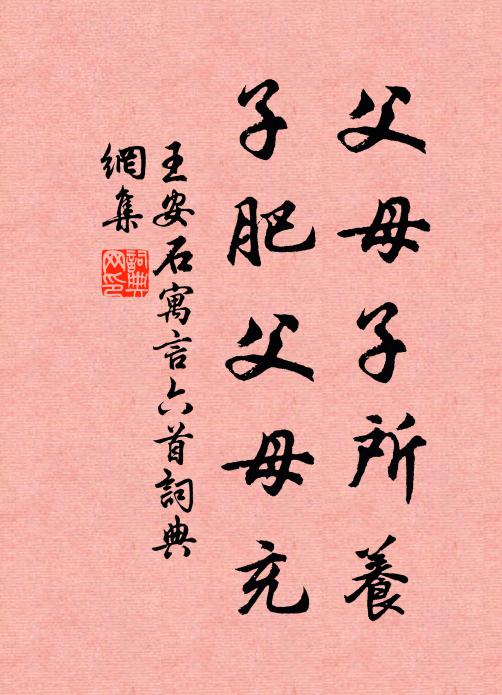 父母子所養
子肥父母充
王安石寓言六首詞典
網集
詞典
网印